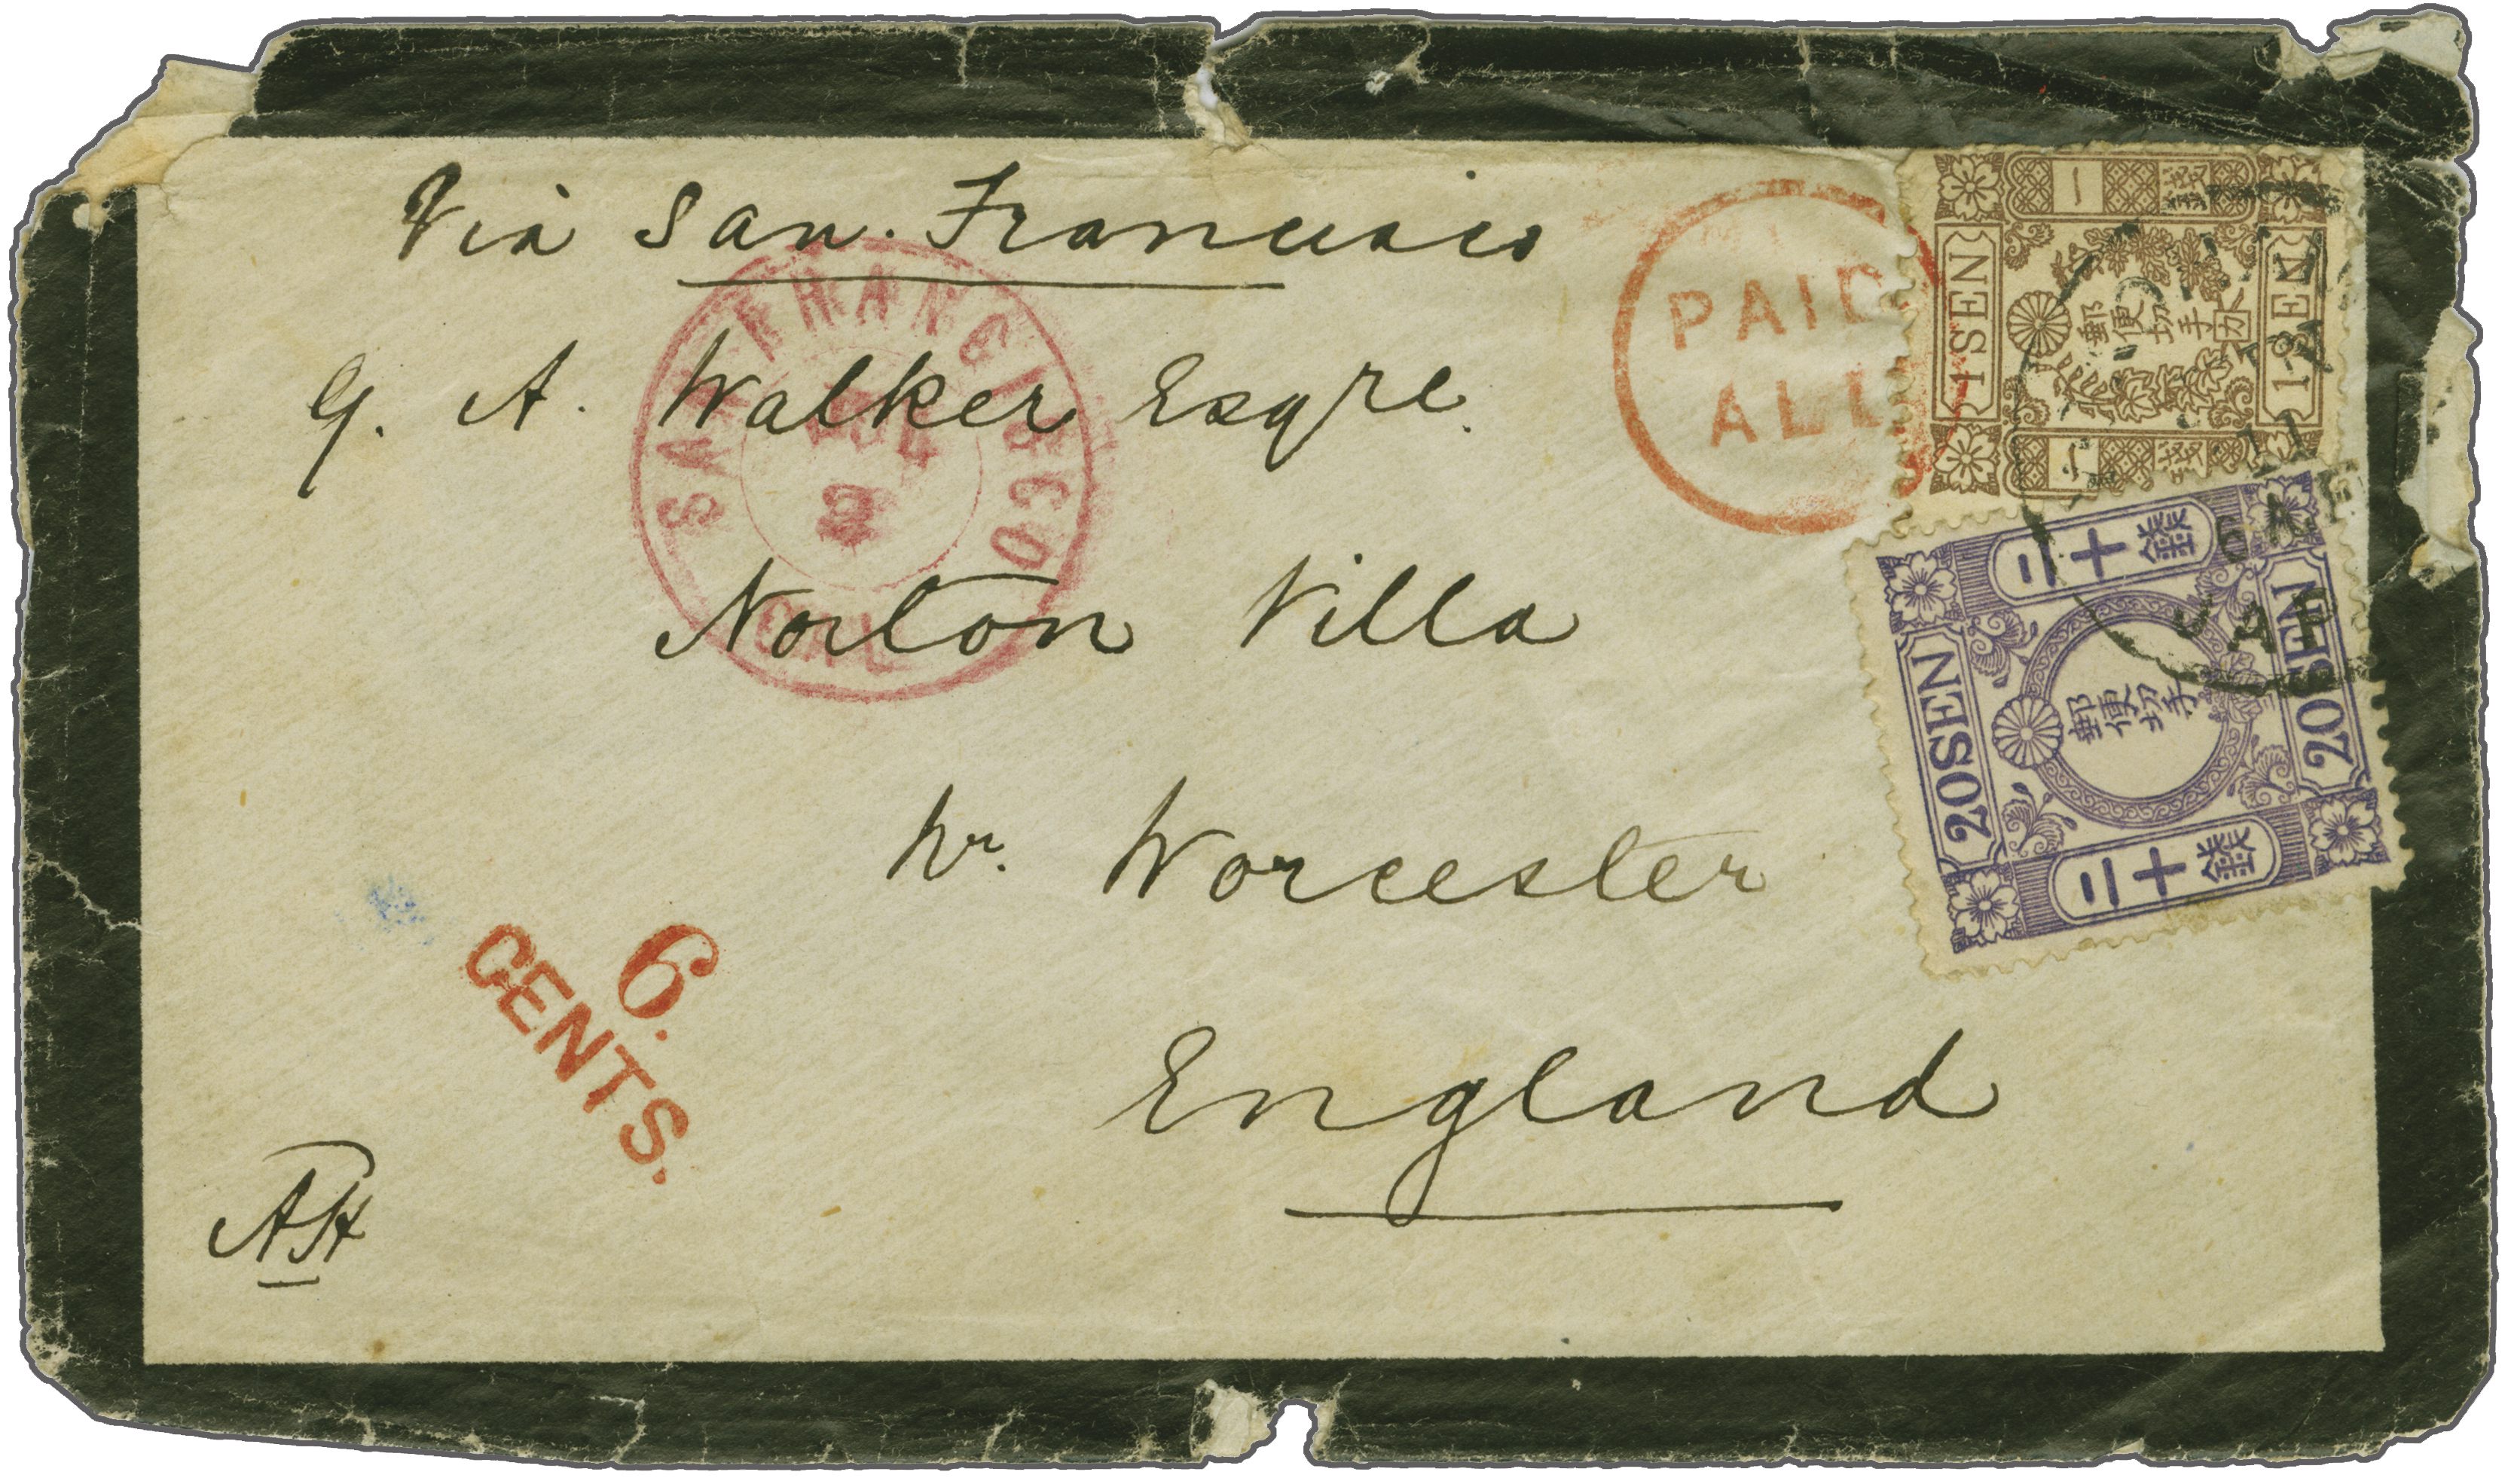 Via San. Francisco
G. A. Walker Esqre.
Norton Villa
Nr. Worcester
England
AH
SAN FRANCISCO
CAL
PAID
ALL
6.
CENTS.
一 錢
1 SEN
郵便切手
1 SEN
一 錢
二十錢
20 SEN
郵便切手
20 SEN
二十錢
JAP